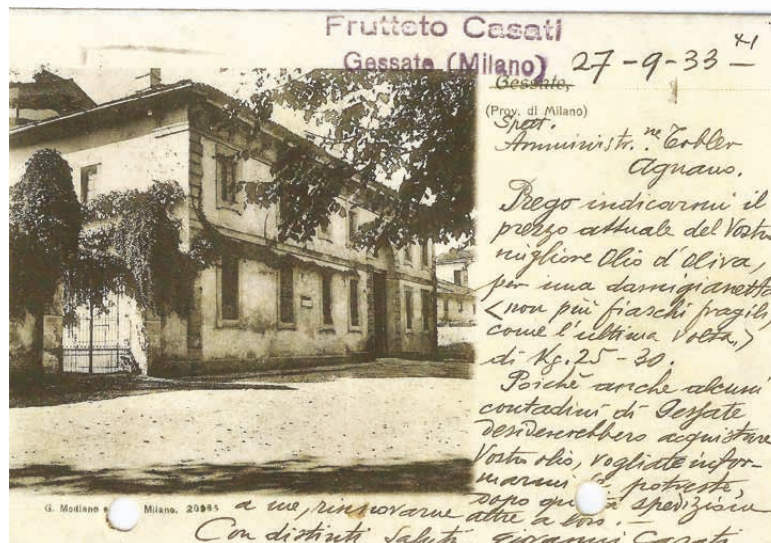 Frutteto Casati
Gessate (Milano) 27-9-33-XI
Gessate,
(Prov. di Milano)
Spett.
Amministr.ne Tobler
Agnano.
Prego indicarmi il
prezzo attuale del Vostro
migliore Olio d'oliva,
per una damigianetta
(non più fiaschi fragili,
come l'ultima volta,)
di Kg. 25-30.
Poichè anche alcuni
contadini di Gessate
desidererebbero acquistare
Vostro olio, vogliate infor-
marmi se potreste,
dopo questa spedizione
a me, rinnovarne altre a loro.-
Con distinti saluti Giovanni Casati
G. Modiano e Milano. 20993